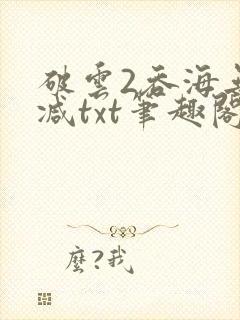 破雲2吞海無
减txt筆趣閣
麼?我